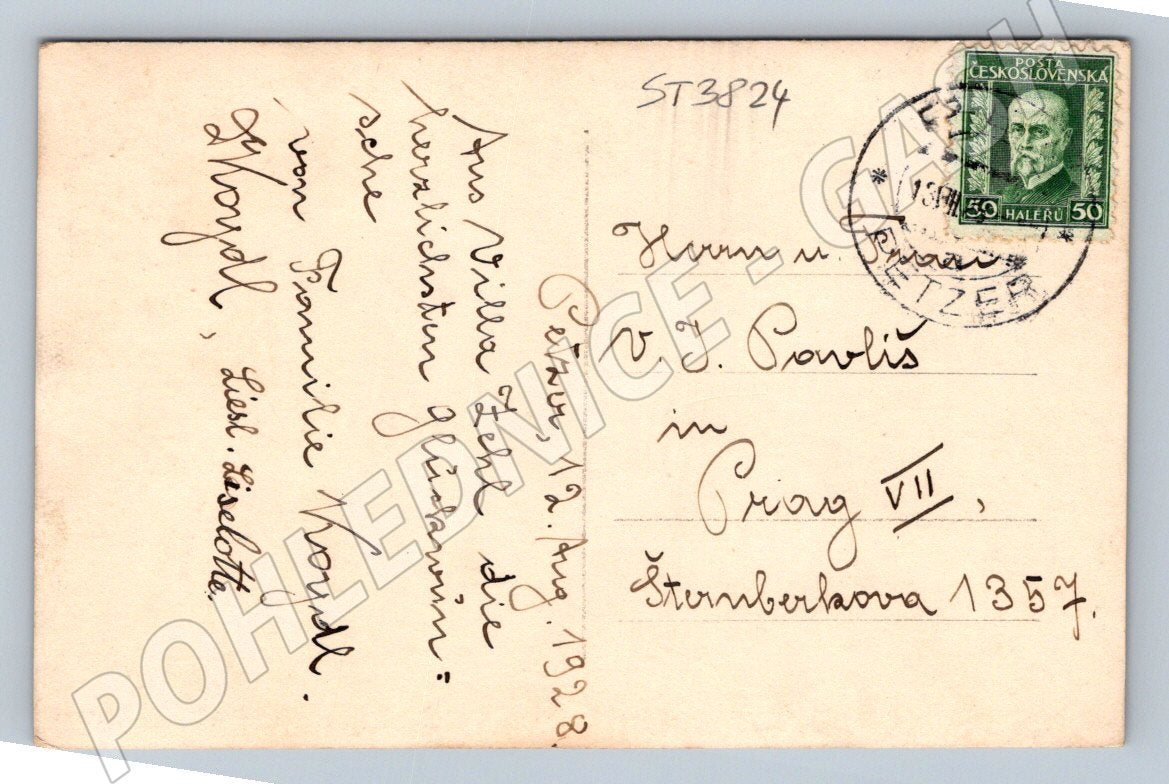 ST3824
POŠTA
ČESKOSLOVENSKÁ
50 HALÉŘŮ 50
PETZER
Petzer, 12. Aug. 1928.
Aus Villa Zehl die
herzlichsten Glückwün=
sche
von Familie Koydl.
Koydl, Liesl. Liselotte.
Herrn u. Frau
V. J. Pavliš
in
Prag VII,
Šternberkova 1357.
POHLEDNICE - GASH